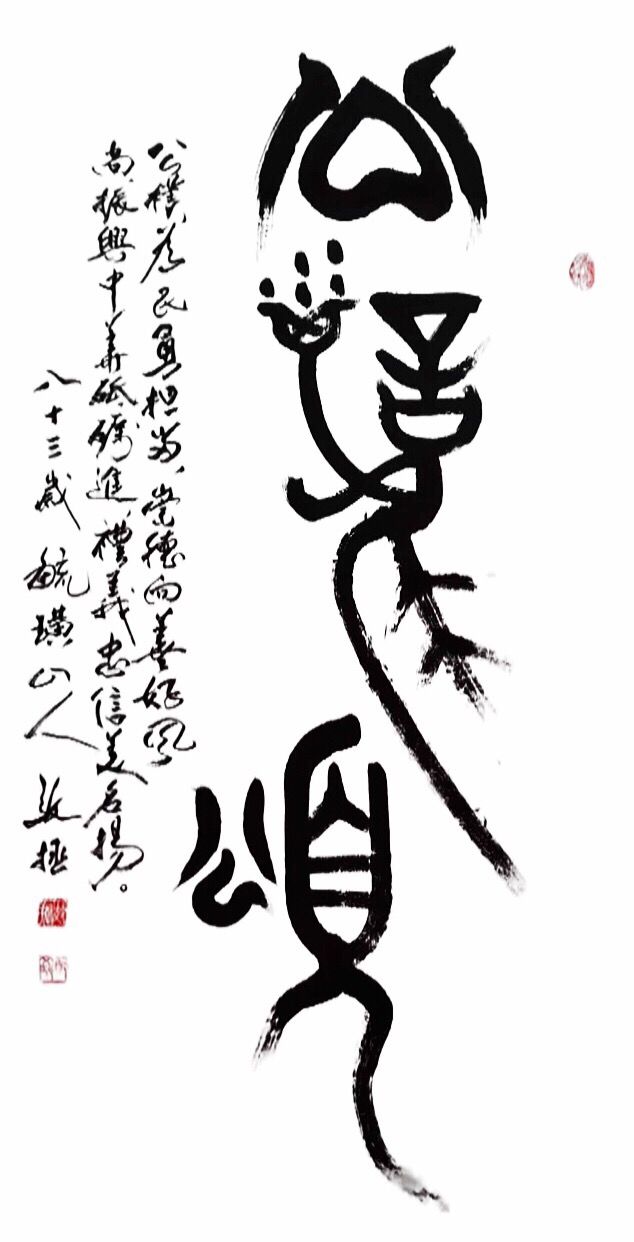 公僕頌
公僕為民勇担当、崇德向善好風
尚、振興中華砥礪進、禮義忠信美名揚。
八十三歲 毓璜山人